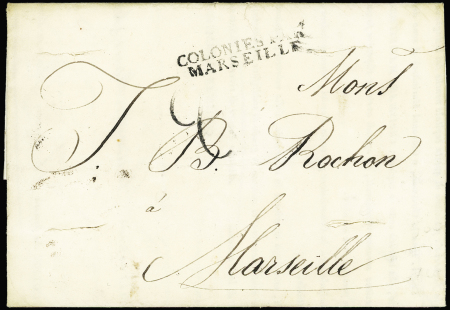 COLONIES PAR
MARSEILLE
Mons
J. B. Rochon
à
Marseille